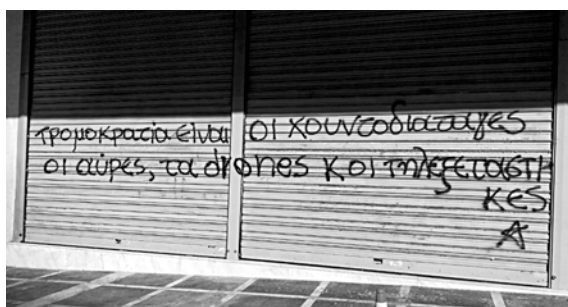 τρομοκρατία είναι οι χουντοδιαταγες
οι αύρες, τα drones κ οι τηλεξεταστι
κες